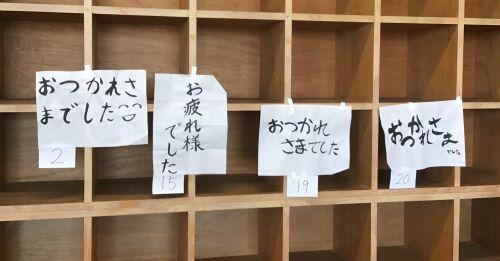 おつかれさ
までした
2
お疲れ様
でした
15
おつかれ
さまでした
19
おつかれさま
でした
20